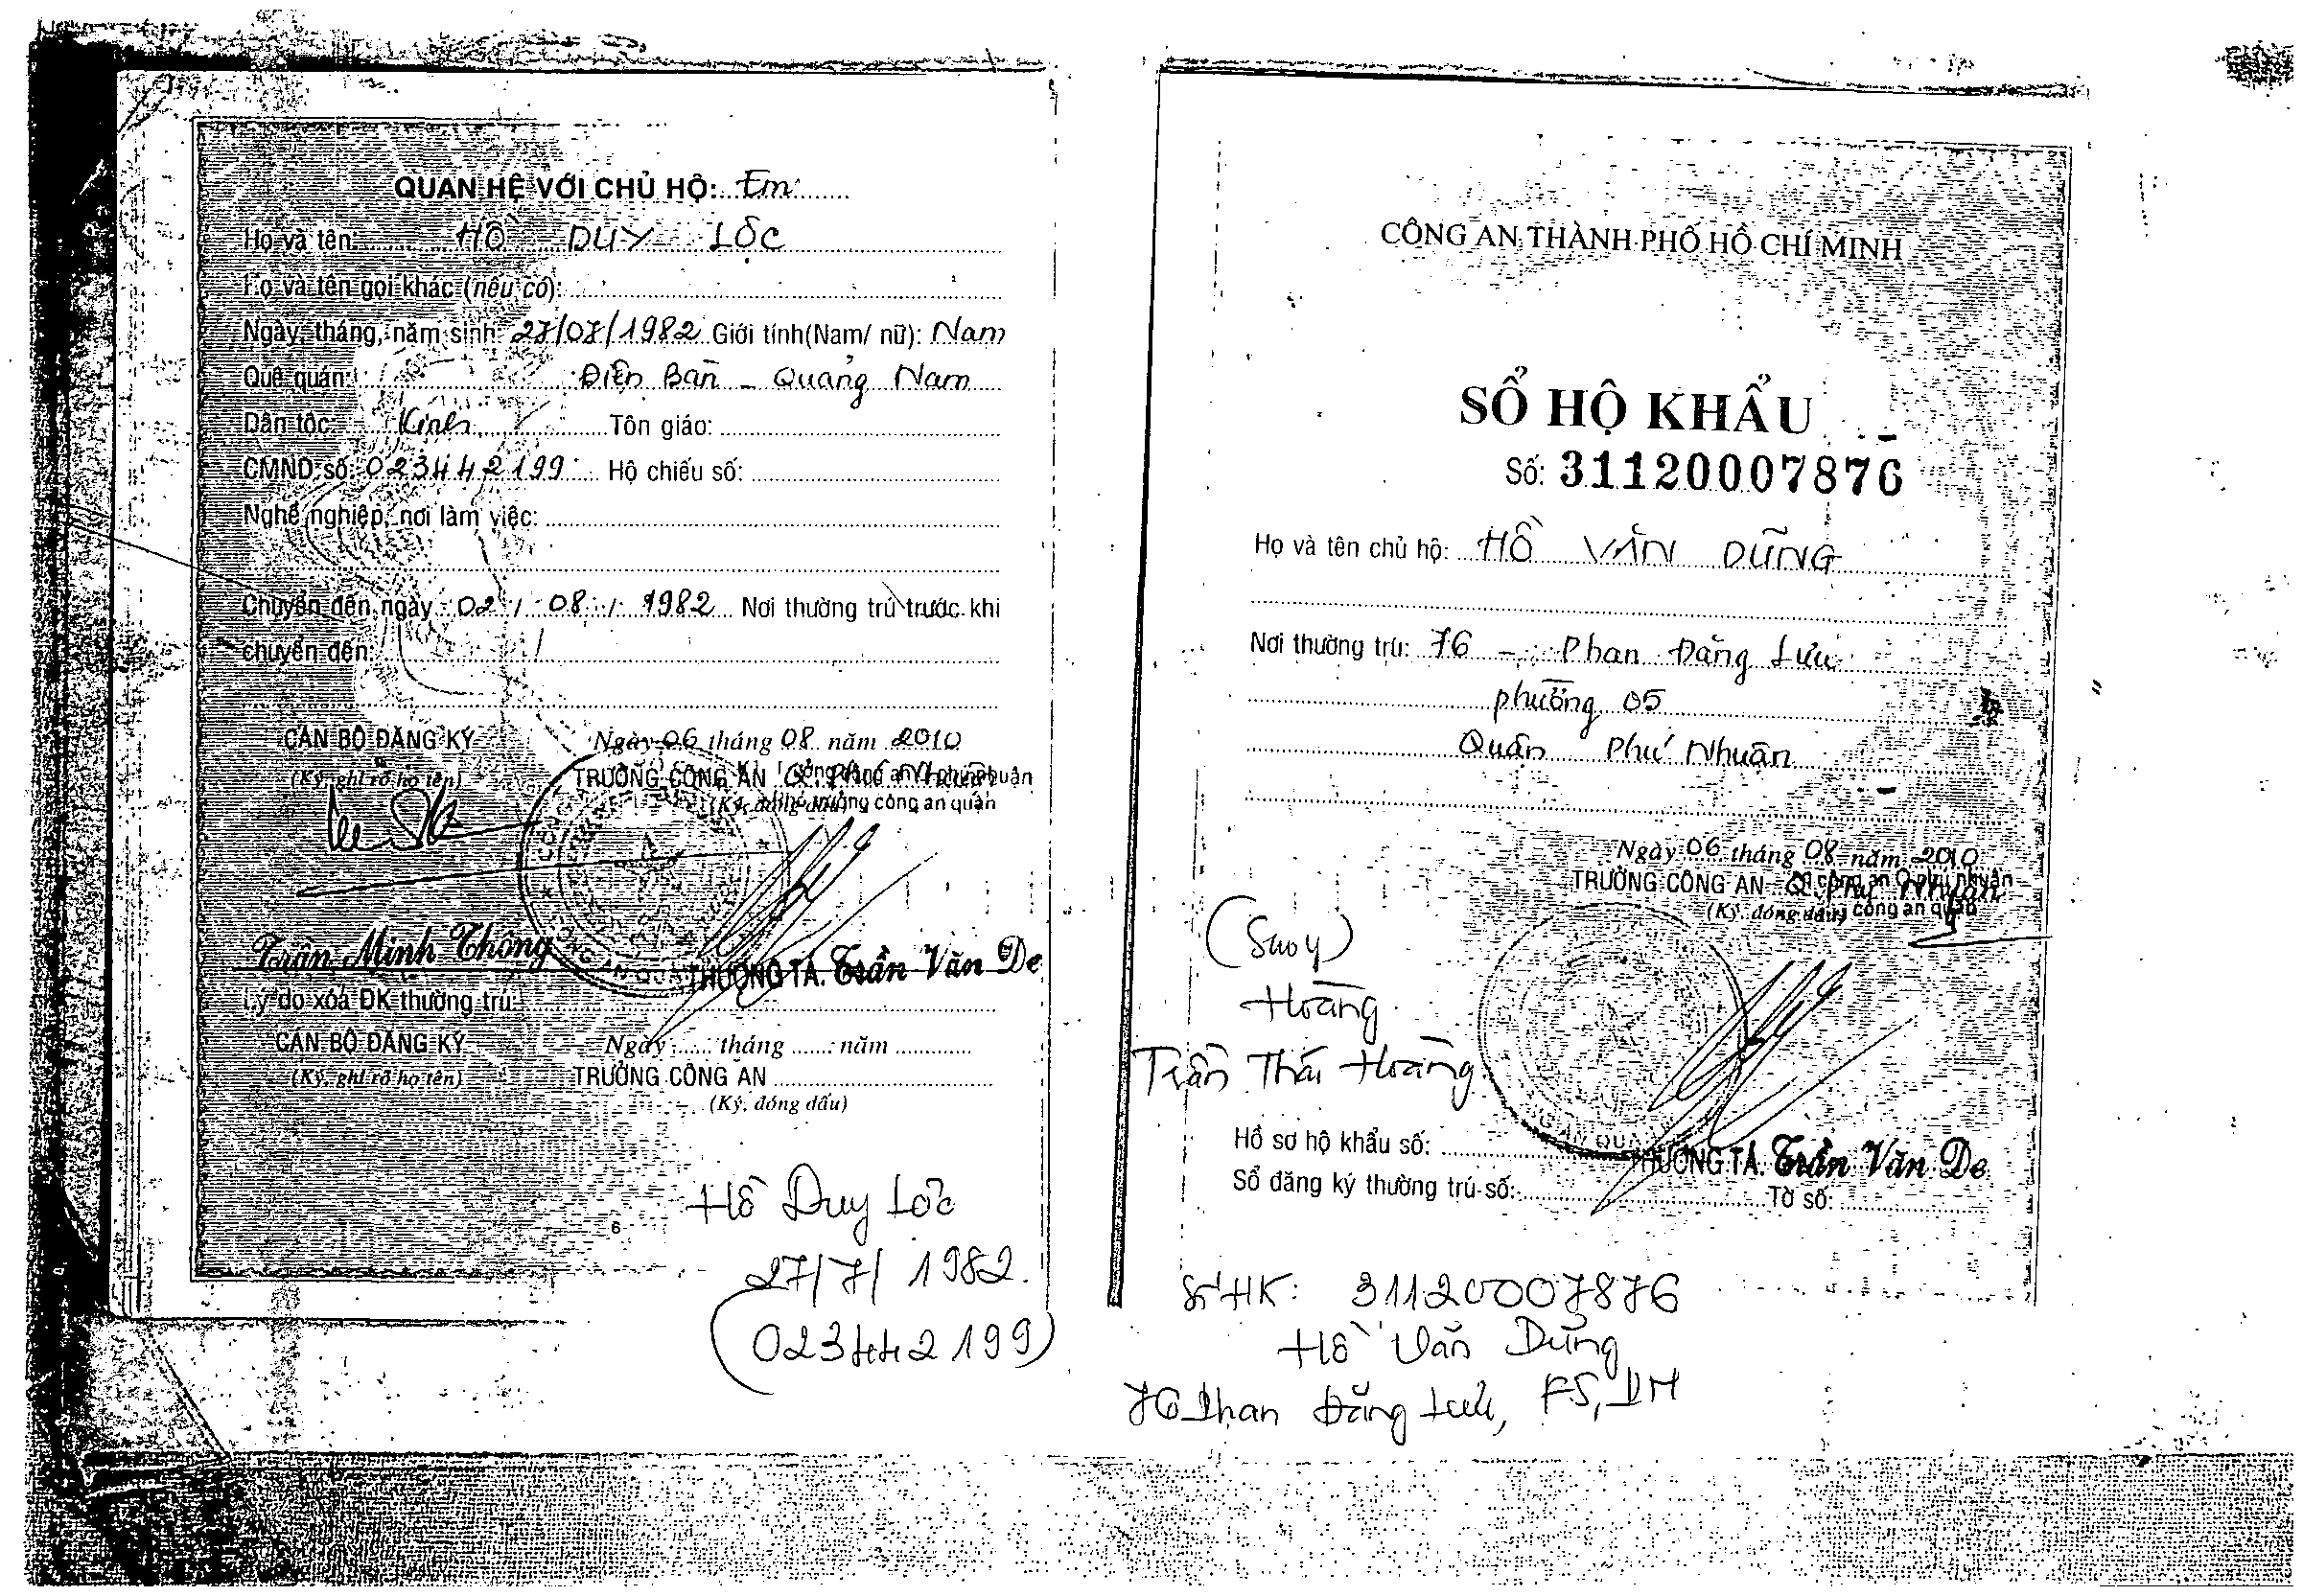 QUAN HỆ VỚI CHỦ HỘ: Em
Họ và tên: HỒ DUY LỘC
Họ và tên gọi khác (nếu có):
Ngày, tháng, năm sinh: 27/07/1982 Giới tính(Nam/ nữ): Nam
Quê quán: Điện Bàn - Quảng Nam
Dân tộc: Kinh Tôn giáo:
CMND số: 023442199 Hộ chiếu số:
Nghề nghiệp, nơi làm việc:
Chuyển đến ngày 02 / 08 / 1982 Nơi thường trú trước khi
chuyển đến:
CÁN BỘ ĐĂNG KÝ
(Ký, ghi rõ họ tên)
Ngày 06 tháng 08 năm 2010
TRƯỞNG CÔNG AN Q. Phú Nhuận
(Ký, đóng dấu) công an quận
Trần Minh Thông
THƯỢNG TÁ. Trần Văn De
Lý do xóa ĐK thường trú:
CÁN BỘ ĐĂNG KÝ
(Ký, ghi rõ họ tên)
Ngày ...... tháng ...... năm ............
TRƯỞNG CÔNG AN
(Ký, đóng dấu)
6
Hồ Duy Lộc
27/7/1982.
(023442199)
CÔNG AN THÀNH PHỐ HỒ CHÍ MINH
SỔ HỘ KHẨU
Số: 31120007876
Họ và tên chủ hộ: HỒ VĂN DŨNG
Nơi thường trú: 76 - Phan Đăng Lưu
phường 05
Quận Phú Nhuận
Ngày 06 tháng 08 năm 2010
TRƯỞNG CÔNG AN Q. Phú Nhuận
(Ký, đóng dấu) công an quận
(Sao y)
Hoàng
Trần Thái Hoàng
Hồ sơ hộ khẩu số:
THƯỢNG TÁ. Trần Văn De
Sổ đăng ký thường trú số: Tờ số:
HK: 31120007876
Hồ Văn Dũng
76 Phan Đăng Lưu, F5,